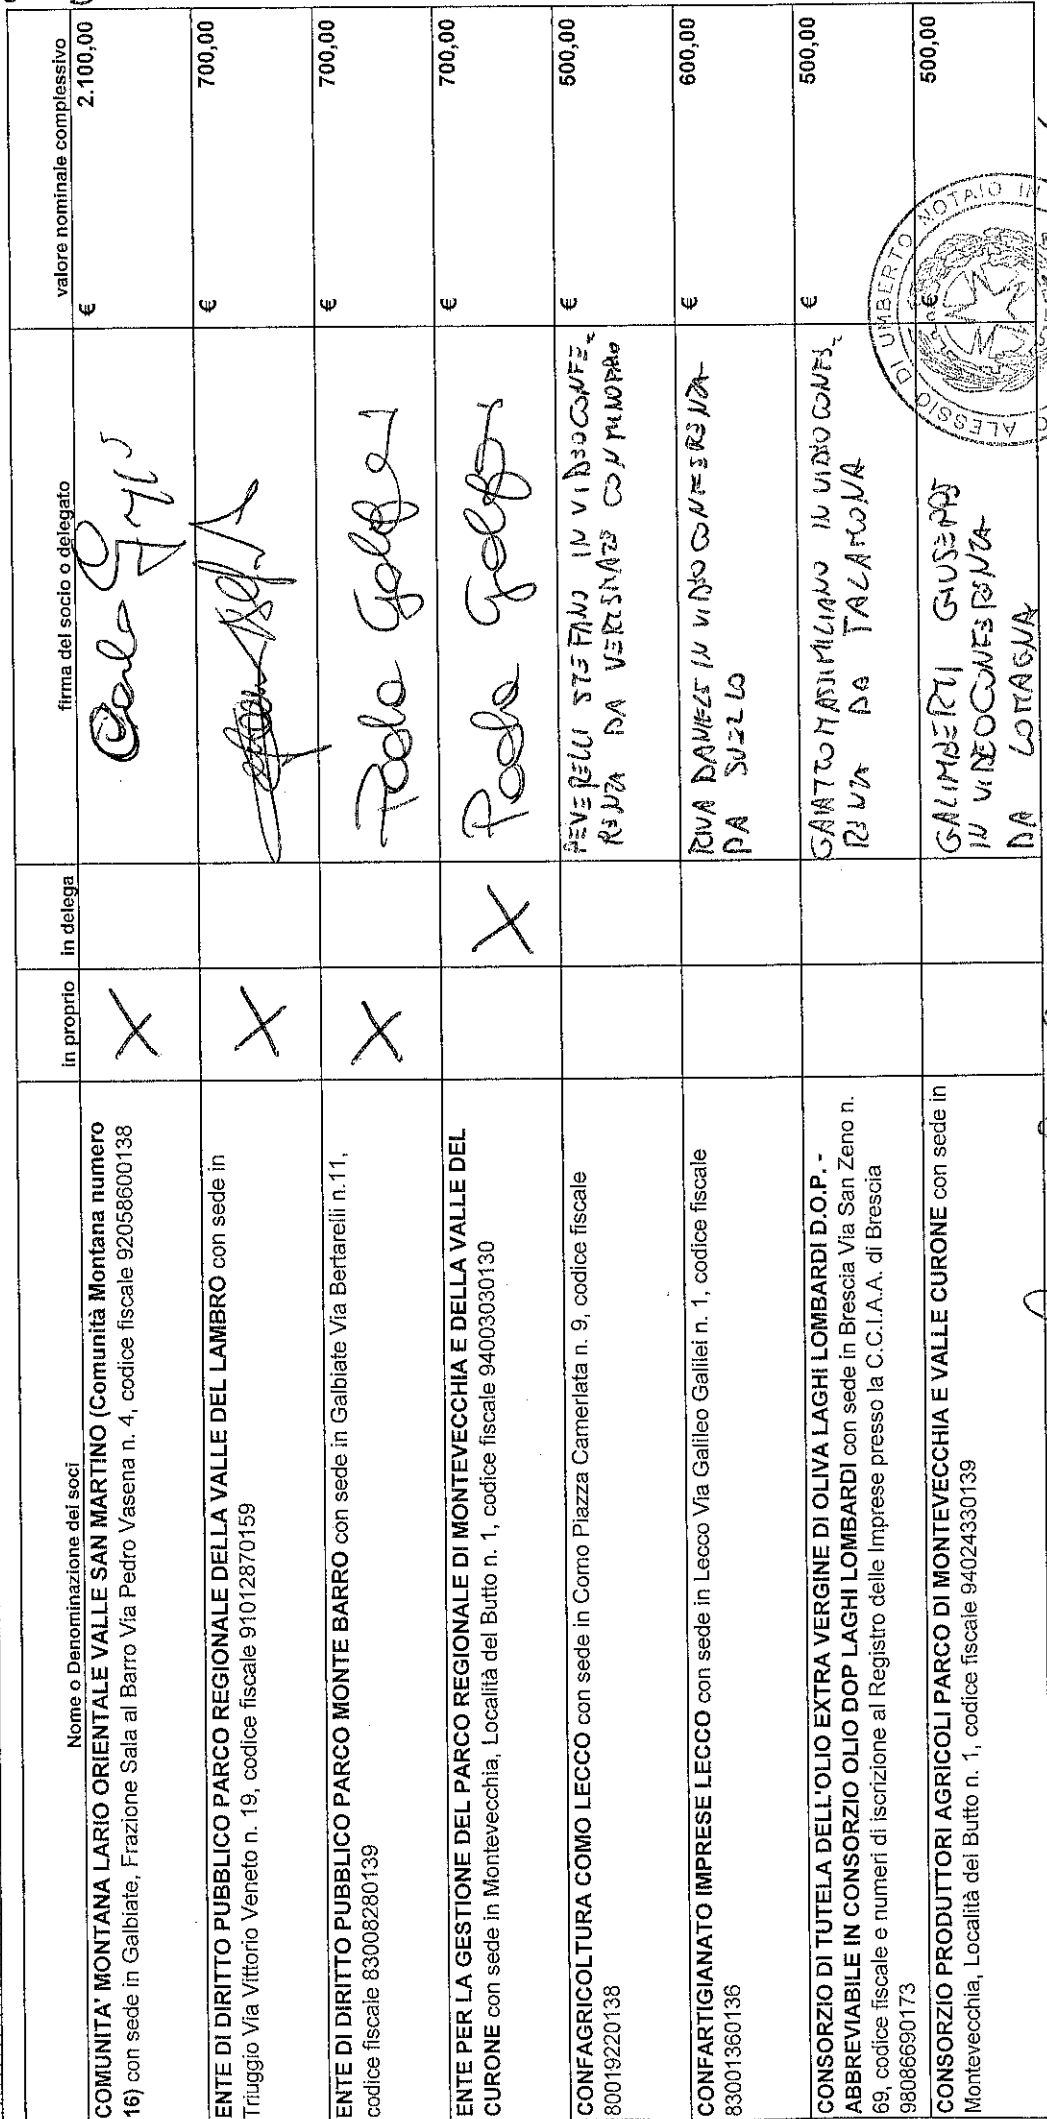 Nome o Denominazione dei soci in proprio in delega firma del socio o delegato valore nominale complessivo
COMUNITA' MONTANA LARIO ORIENTALE VALLE SAN MARTINO (Comunità Montana numero
16) con sede in Galbiate, Frazione Sala al Barro Via Pedro Vasena n. 4, codice fiscale 92058600138
X
€ 2.100,00
ENTE DI DIRITTO PUBBLICO PARCO REGIONALE DELLA VALLE DEL LAMBRO con sede in
Triuggio Via Vittorio Veneto n. 19, codice fiscale 91012870159
X
€ 700,00
ENTE DI DIRITTO PUBBLICO PARCO MONTE BARRO con sede in Galbiate Via Bertarelli n.11,
codice fiscale 83008280139
X
Paola Golfari
€ 700,00
ENTE PER LA GESTIONE DEL PARCO REGIONALE DI MONTEVECCHIA E DELLA VALLE DEL
CURONE con sede in Montevecchia, Località del Butto n. 1, codice fiscale 94003030130
X
Paola Golfari
€ 700,00
CONFAGRICOLTURA COMO LECCO con sede in Como Piazza Camerlata n. 9, codice fiscale
80019220138
PEVERELLI STEFANO IN VIDEOCONFE=
RENZA DA VERTEMATE CON MINOPRIO
€ 500,00
CONFARTIGIANATO IMPRESE LECCO con sede in Lecco Via Galileo Galilei n. 1, codice fiscale
83001360136
RIVA DANIELE IN VIDEOCONFERENZA
DA SUELLO
€ 600,00
CONSORZIO DI TUTELA DELL'OLIO EXTRA VERGINE DI OLIVA LAGHI LOMBARDI D.O.P. -
ABBREVIABILE IN CONSORZIO OLIO DOP LAGHI LOMBARDI con sede in Brescia Via San Zeno n.
69, codice fiscale e numeri di iscrizione al Registro delle Imprese presso la C.C.I.A.A. di Brescia
98086690173
GAIATTO MASSIMILIANO IN VIDEOCONFE=
RENZA DA TALAMONA
€ 500,00
CONSORZIO PRODUTTORI AGRICOLI PARCO DI MONTEVECCHIA E VALLE CURONE con sede in
Montevecchia, Località del Butto n. 1, codice fiscale 94024330139
GALIMBERTI GIUSEPPE
IN VIDEOCONFERENZA
DA LOMAGNA
€ 500,00
ALESSIO DI UMBERTO NOTAIO IN